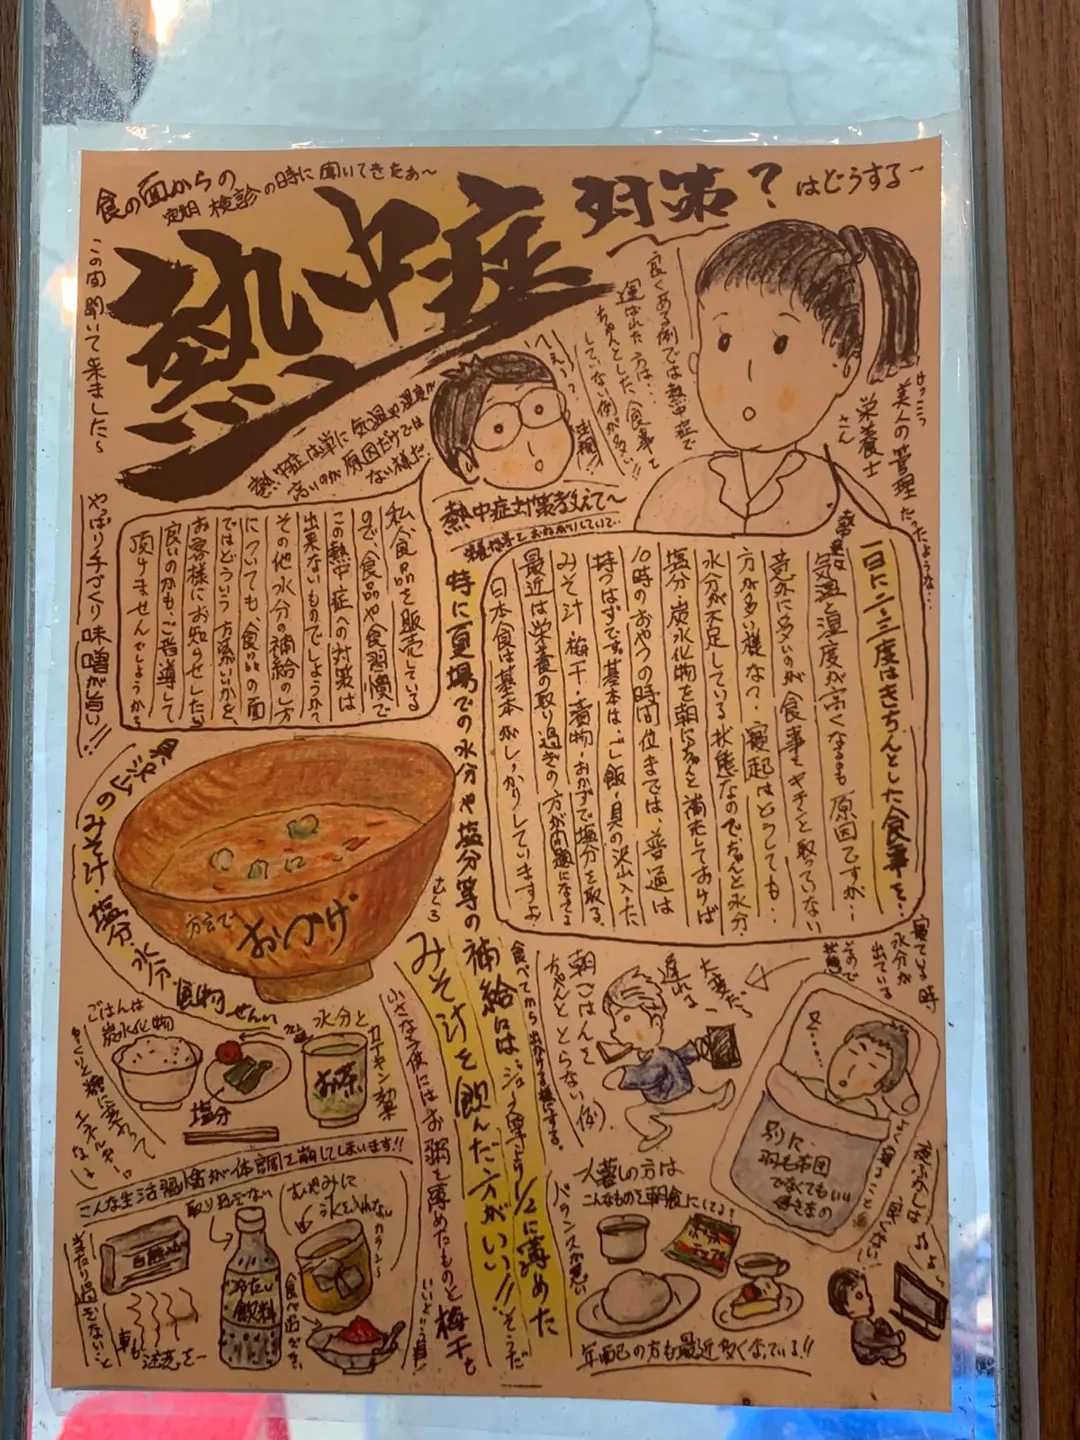 食の面からの
定期検診の時に聞いてきたぁ〜
熱中症対策?はどうする〜
この間聞いて来ましたら
熱中症は単に気温や湿度が
高いのが原因だけでは
ない様だ
へぇっ
良くある例では熱中症で
運ばれた方は…
ちゃんとした食事を
していない例が多い!!
けっこう
美人の管理
栄養士
さん
だったような…
熱中症対策教えて〜
やっぱり手づくり味噌が旨い!!
私、食品を販売している
ので、食品や食習慣で
この熱中症への対策は
出来ないものでしょうか?
その他水分の補給のし方
についても、食品の面
ではどういう方法がいいかを、
お客様にお知らせしたら
良いのかも、ご指導して
頂けませんでしょうか
一日に二、三度はきちんとした食事を…
熱中症は
気温と湿度が高くなるも原因ですが…
意外に多いのが食事をキチンと取っていない
方が多い様な?寝起はどうしても…
水分が不足している状態なのでちゃんと水分・
塩分・炭水化物を朝にちゃんと補充しておけば
10時のおやつの時間位までは、普通は
持つはずです。基本は、ご飯・具の沢山入った
みそ汁・梅干・漬物・おかずで塩分を取る、
最近は栄養の取り過ぎの方が問題になってる
日本食は基本がしっかりしていますよ
特に夏場での水分や塩分等の補給にはジュース等より1/2に薄めた
むしろ
みそ汁を飲んだ方がいい!!そうだ
小さな子供にはお粥を薄めたものと梅干も
いいという事
のみそ汁・塩分・水分・食物せんい
方言で
おつけ
ごはんは
炭水化物
ゆっくり糖に変わって
エネルギーに
なるよ
塩分
水分と
カテキン茶
お茶
こんな生活習慣が体調を崩してしまいます!!
取り過ぎない
むやみに
氷を入れない
カラン〜
冷たい
飲料
食べ過ぎない
当たり過ぎないこと
車も注意を〜
食べてから出かける様にする。
朝ごはんを
ちゃんととらない
(例)
大変だ〜
遅れる〜
寝てる時
水分が
出ている
ので
又……
別に、
羽毛布団
でなくてもいい
好き的の
夜ふかしは
一人暮しの方は
こんなものを朝食にしてる?
バランスが悪い
年配の方も最近多くなっている!!